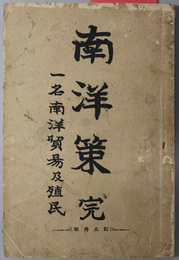 南洋策 完
一名南洋貿易及殖民